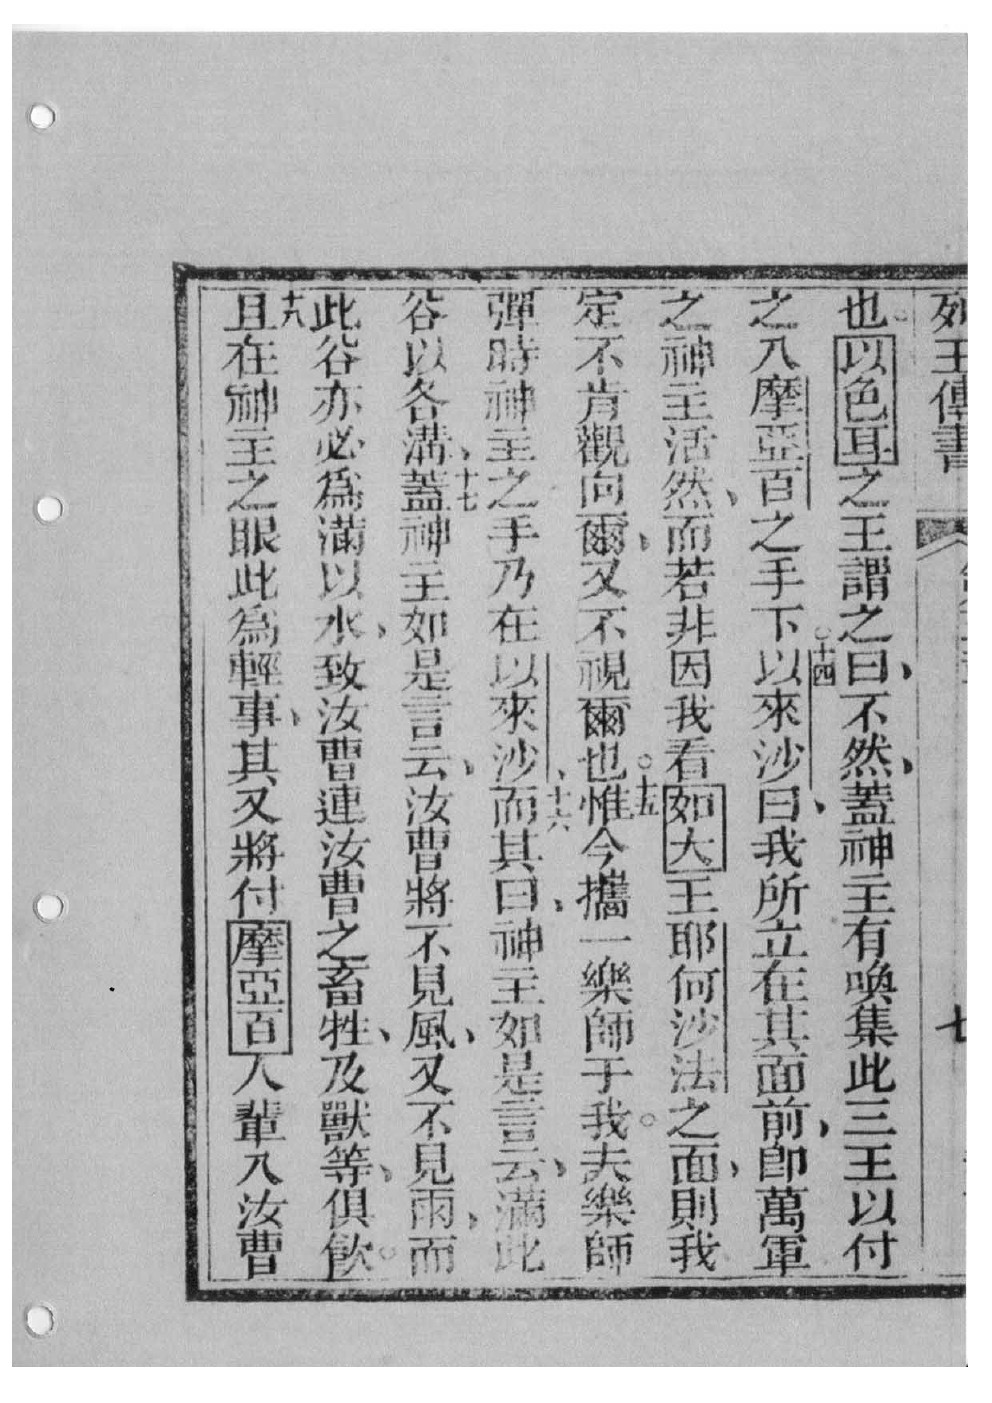 列王傳書
七
也。以色耳之王謂之曰、不然、蓋神主有喚集此三王以付
之入摩亞百之手下。十四以來沙曰、我所立在其面前、卽萬軍
之神主活然、而若非因我看如大王耶何沙法之面、則我
定不肯觀向爾、又不視爾也。十五惟今攜一樂師于我。夫樂師
彈時神主之手乃在以來沙、十六而其曰、神主如是言云、滿此
谷以各溝、十七蓋神主如是言云、汝曹將不見風、又不見雨、而
此谷亦必爲滿以水、致汝曹連汝曹之畜牲、及獸等、俱飮。
十八且在神主之眼此爲輕事、其又將付摩亞百人輩入汝曹